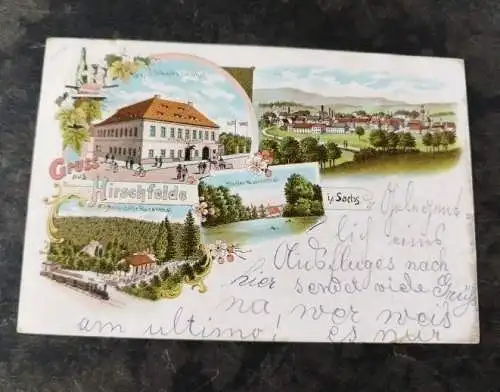 Gruss
aus
Hirschfelde
i/ Sachs.
Gelegent-
lich eines
Ausfluges nach
hier sendet viele Grüße
na, wer weis
am ultimo! es nur